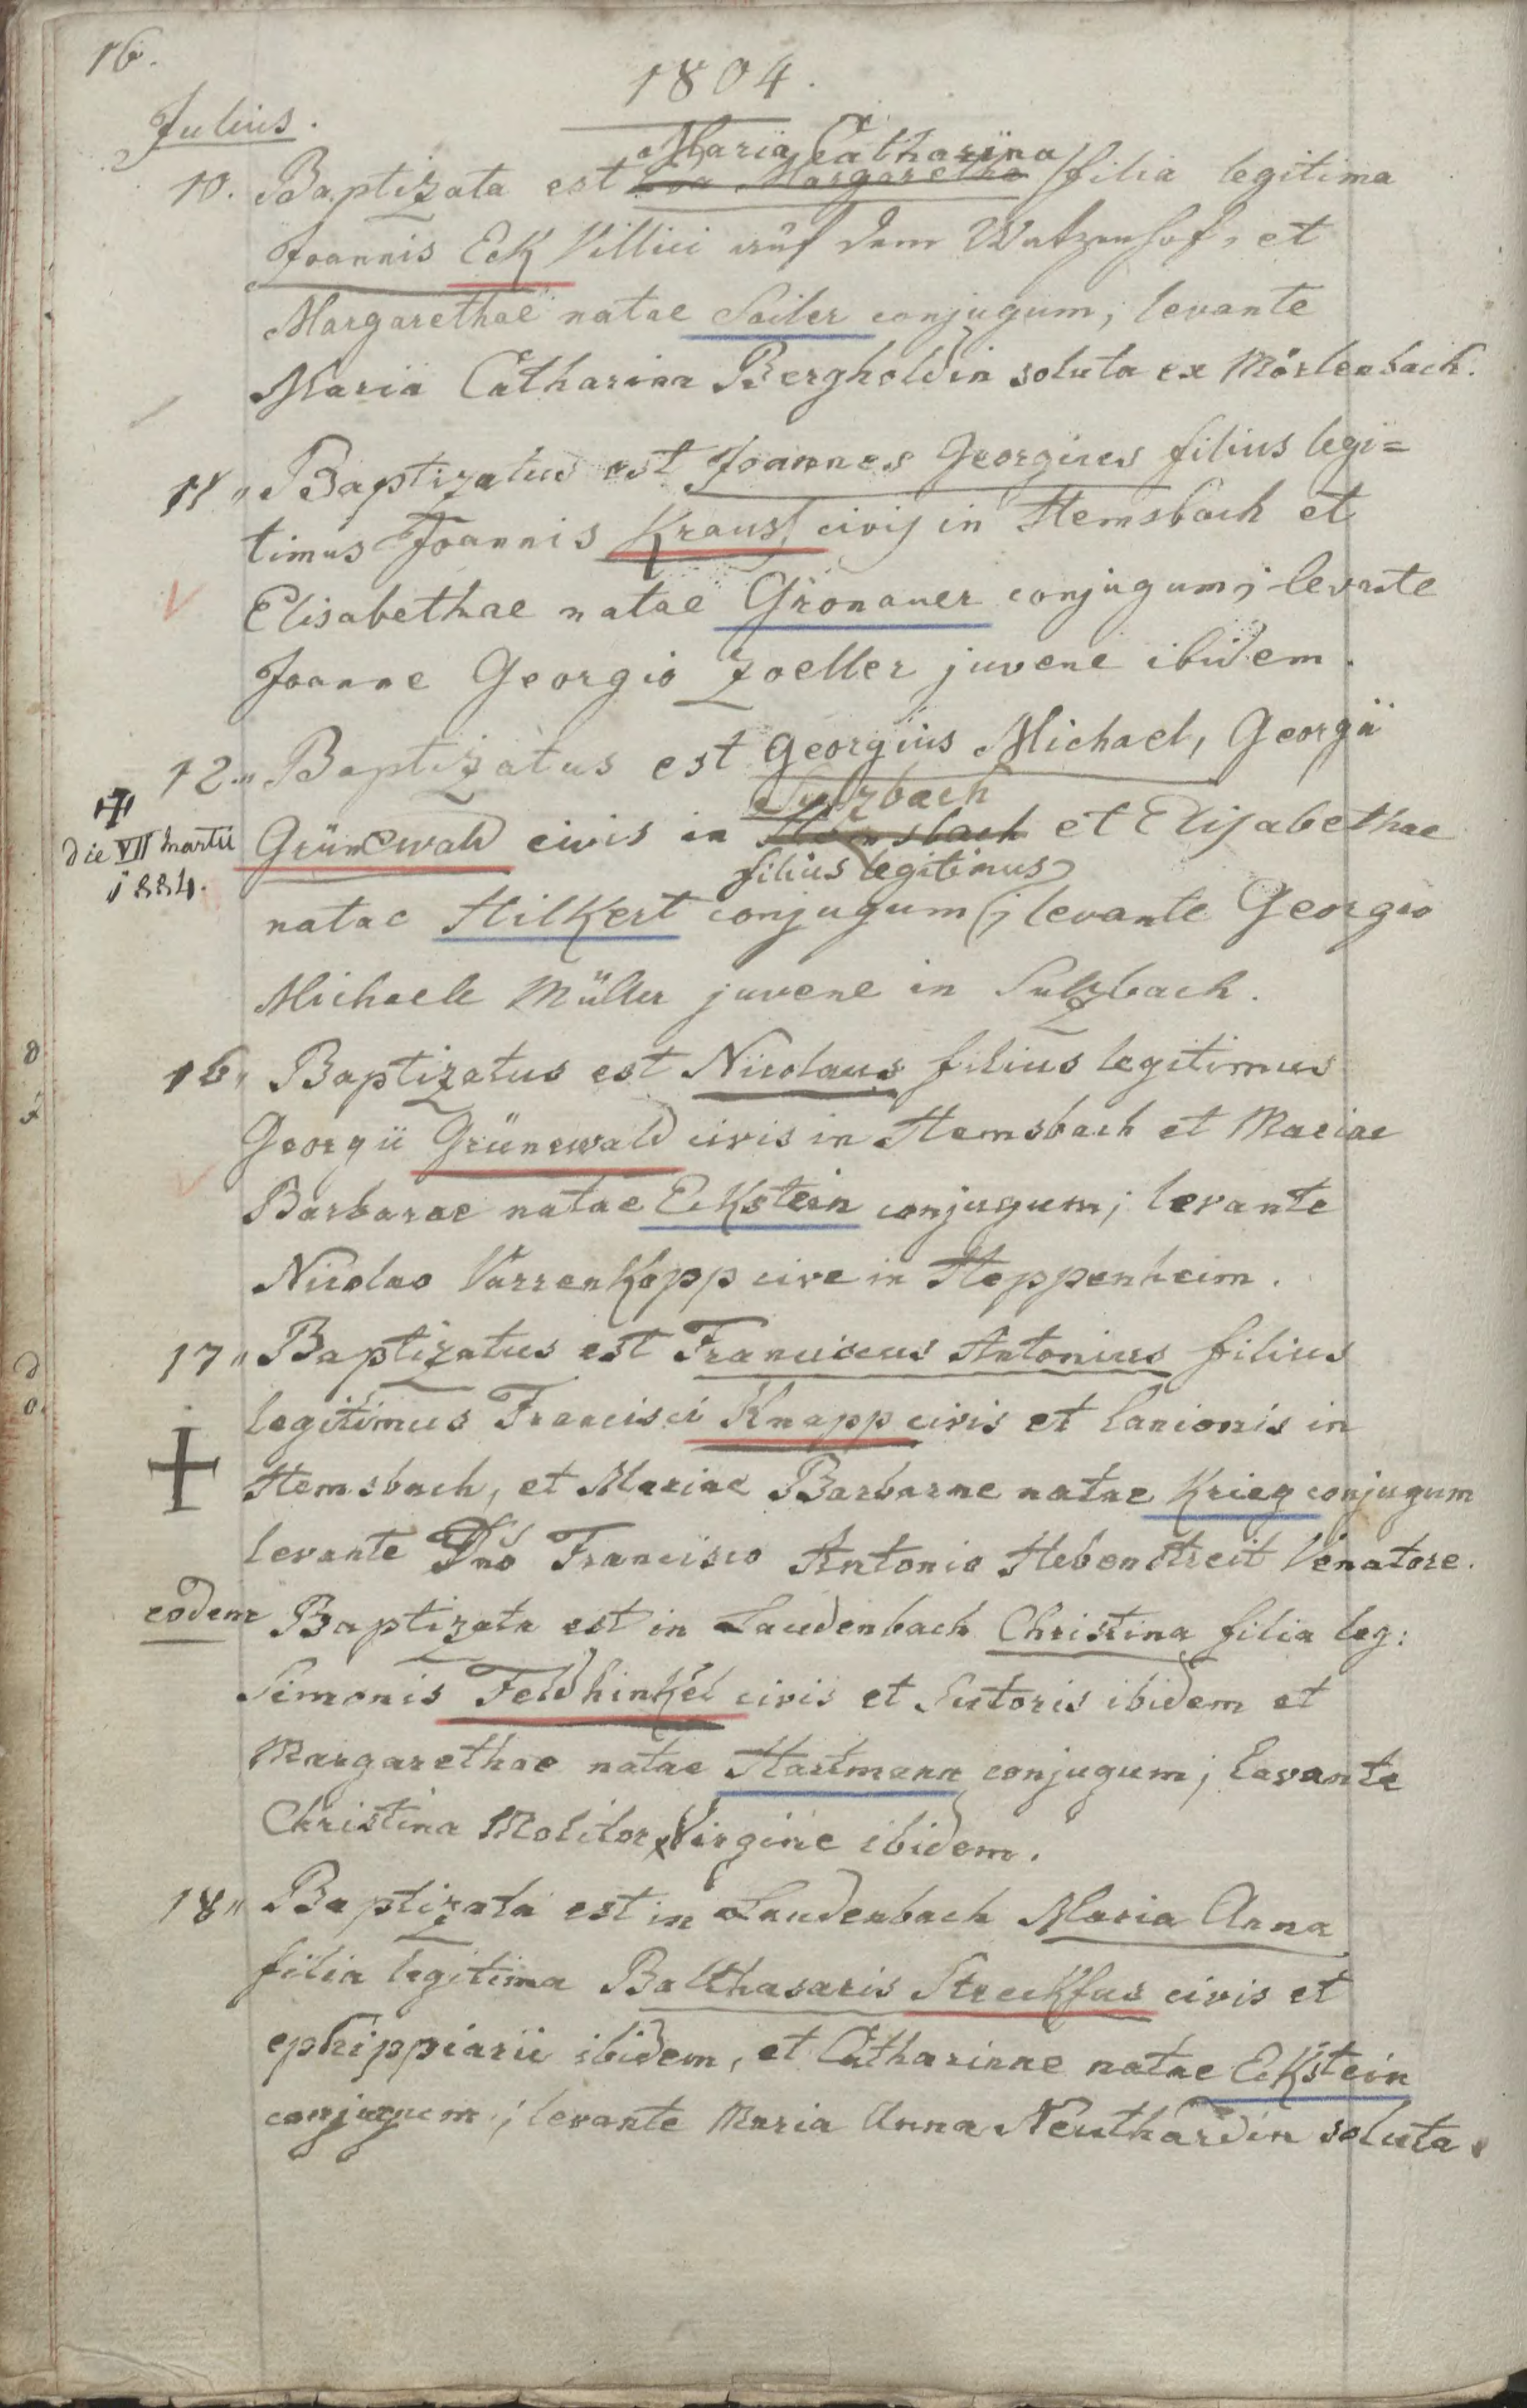 16.
1804.
Julius.
Maria Catharina
10. Baptizata est Eva Margaretha filia legitima
Joannis Eck Villici auf dem Watzenhof, et
Margarethae natae Sailer conjugum; levante
Maria Catharina Bergholdin soluta ex Mörlenbach.
11 " Baptizatus est Joannes Georgius filius legi=
timus Joannis Kraus civis in Hemsbach et
Elisabethae natae Gronauer conjugum; levante
Joanne Georgio Zoeller juvene ibidem.
12 " Baptizatus est Georgius Michael, Georgii
Sulzbach
Grünewald civis in Hemsbach et Elisabethae
die VII Martii
1884.
filius legitimus
natae Hilkert conjugum; levante Georgio
Michaele Müller juvene in Sulzbach.
16 " Baptizatus est Nicolaus filius legitimus
Georgii Grünewald civis in Hemsbach et Mariae
Barbarae natae Eckstein conjugum; levante
Nicolao Varrenkopp cive in Heppenheim.
17 " Baptizatus est Franciscus Antonius filius
legitimus Francisci Knapp civis et lanionis in
Hemsbach, et Mariae Barbarae natae Krieg conjugum
levante Dno Francisco Antonio Hebenstreit Venatore.
eodem Baptizata est in Laudenbach Christina filia leg:
Simonis Feldhinkel civis et Sutoris ibidem et
Margarethae natae Hartmann conjugum; levante
Christina Molitor Virgine ibidem.
18 " Baptizata est in Laudenbach Maria Anna
filia legitima Balthasaris Streckfus civis et
ephippiarii ibidem, et Catharinae natae Eckstein
conjugum; levante Maria Anna Neuthardin soluta.